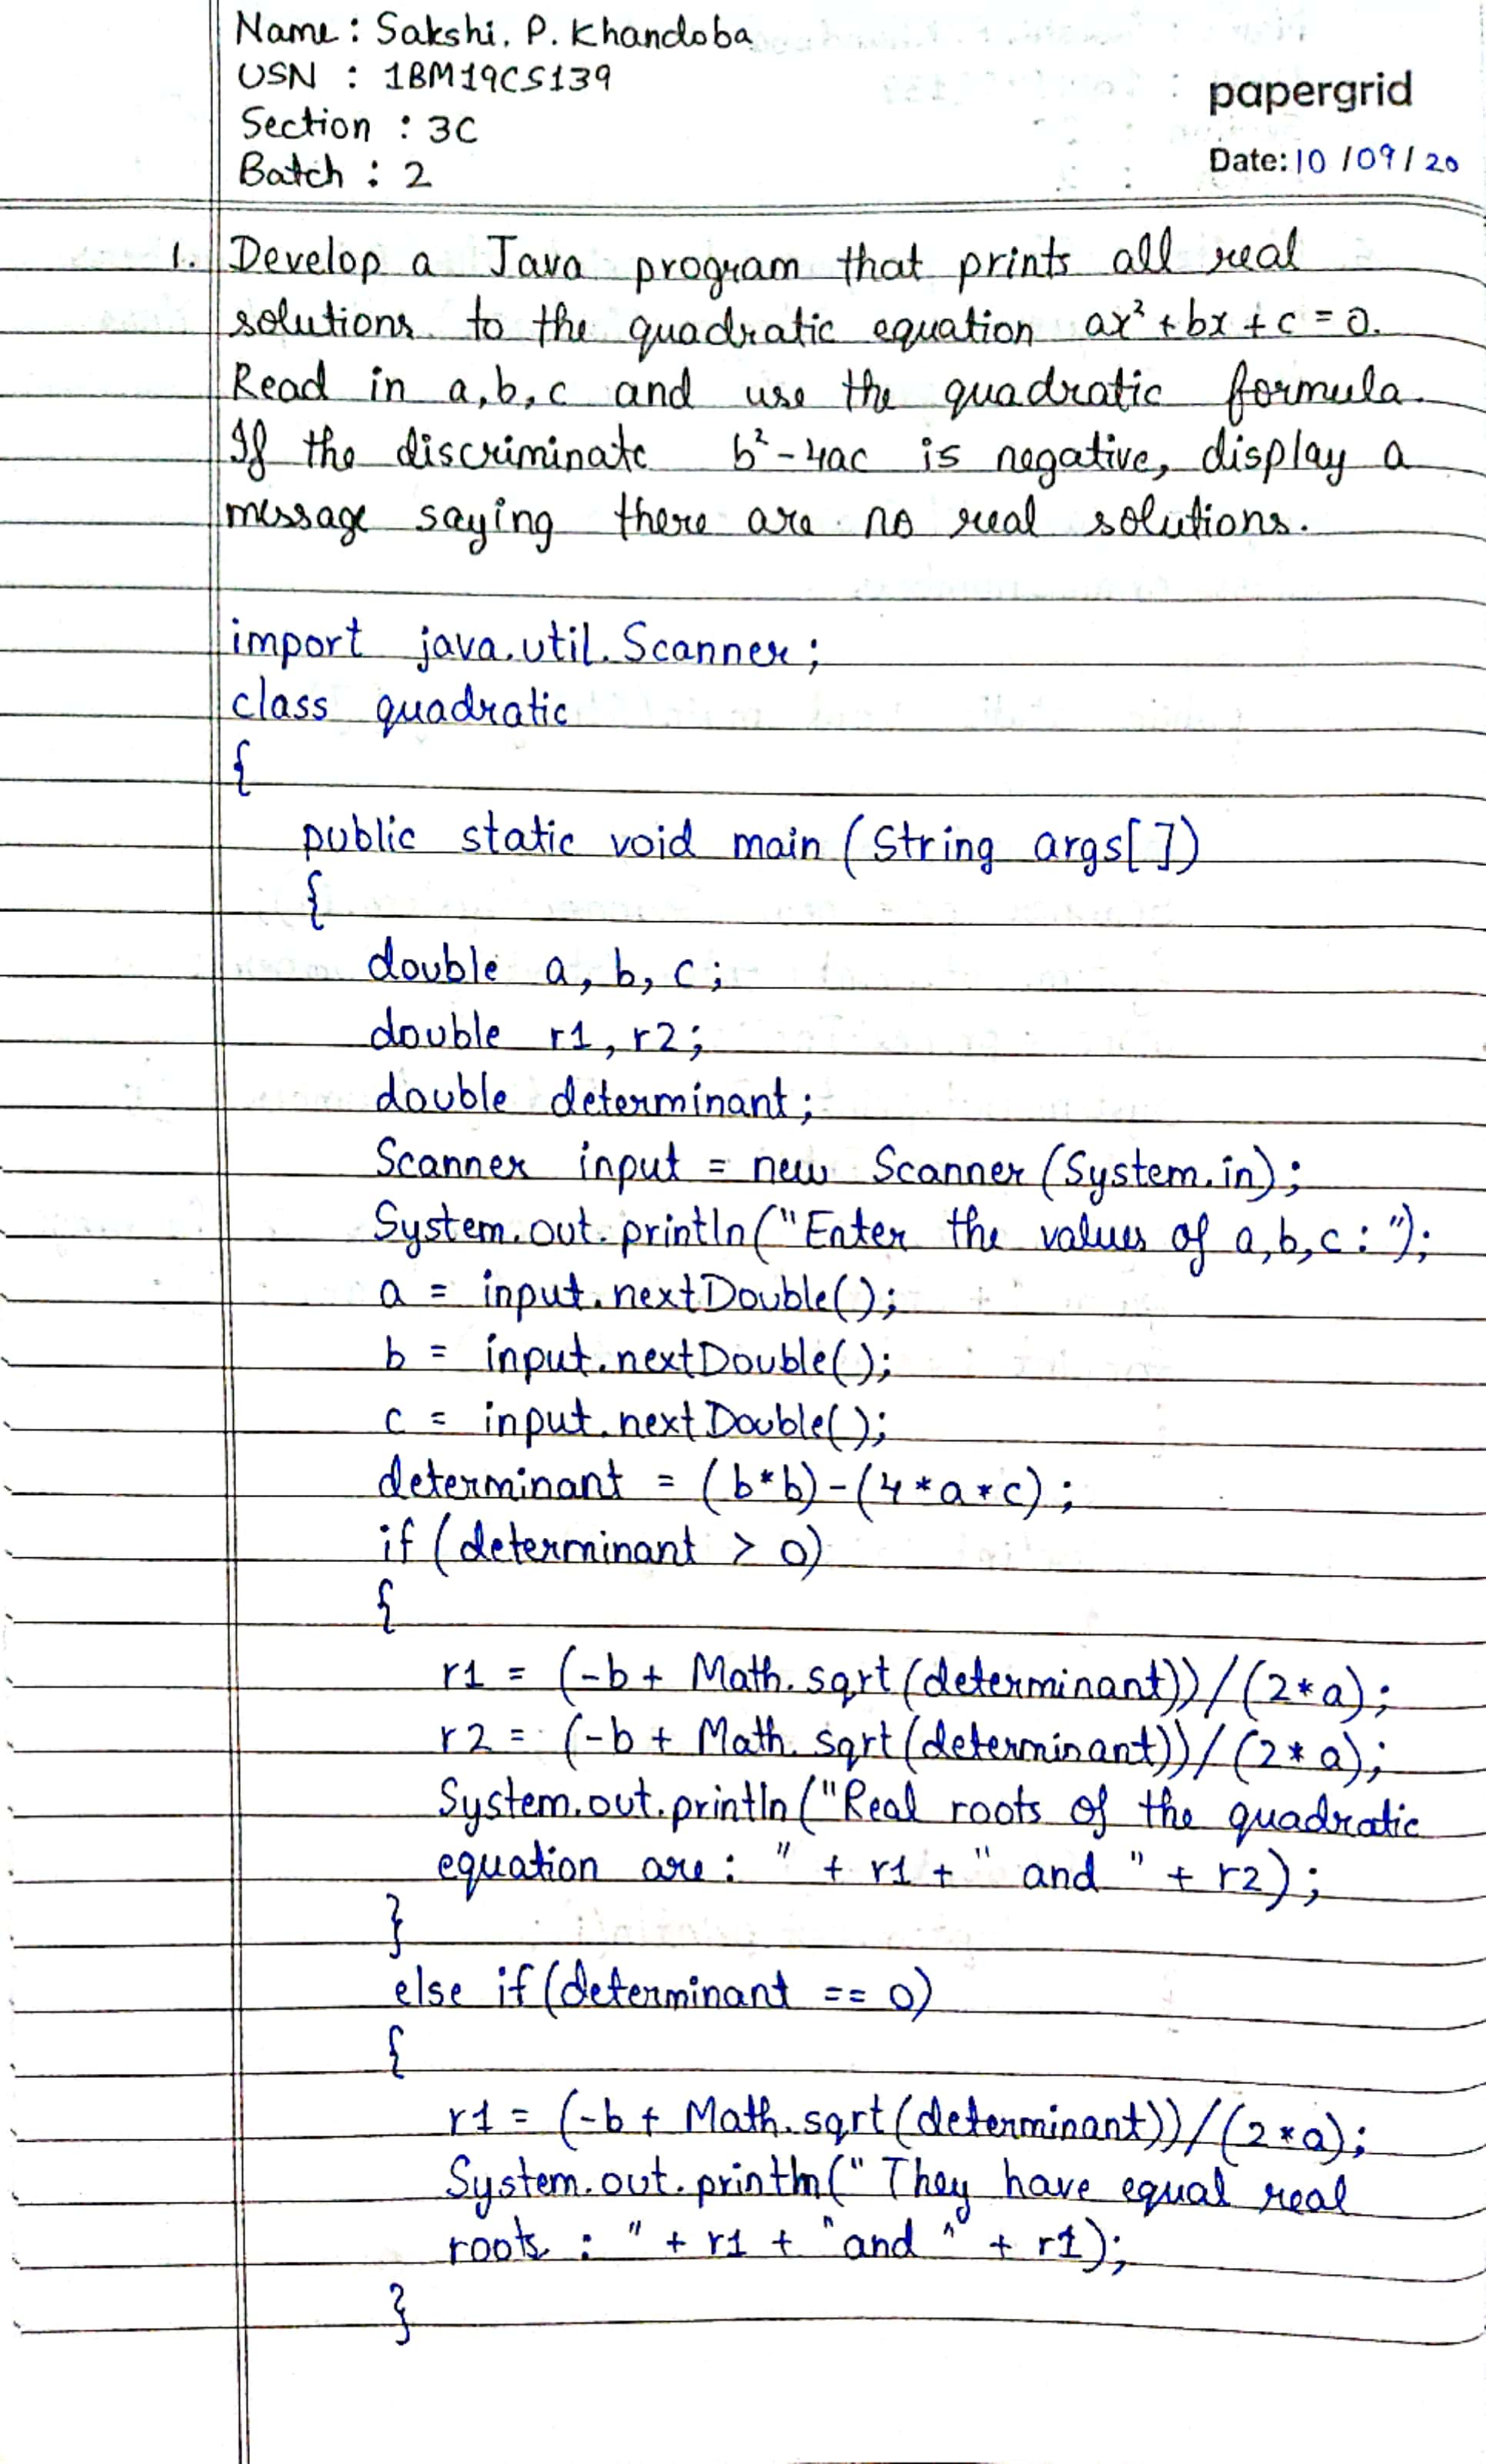 Name : Sakshi. P. Khandoba
USN : 1BM19CS139
Section : 3C
Batch : 2
papergrid
Date: 10 / 09 / 20
1. Develop a Java program that prints all real
solutions to the quadratic equation ax² + bx + c = 0.
Read in a, b, c and use the quadratic formula.
If the discriminate b² - 4ac is negative, display a
message saying there are no real solutions.
import java.util.Scanner;
class quadratic
{
public static void main (String args[ ])
{
double a, b, c;
double r1, r2;
double determinant;
Scanner input = new Scanner (System.in);
System.out.println ("Enter the values of a, b, c : ");
a = input.nextDouble();
b = input.nextDouble();
c = input.nextDouble();
determinant = (b*b) - (4*a*c);
if (determinant > 0)
{
r1 = (-b + Math.sqrt (determinant)) / (2*a);
r2 = (-b + Math.sqrt (determinant)) / (2*a);
System.out.println ("Real roots of the quadratic
equation are : " + r1 + " and " + r2);
}
else if (determinant == 0)
{
r1 = (-b + Math.sqrt (determinant)) / (2*a);
System.out.println (" They have equal real
roots : " + r1 + "and " + r1);
}